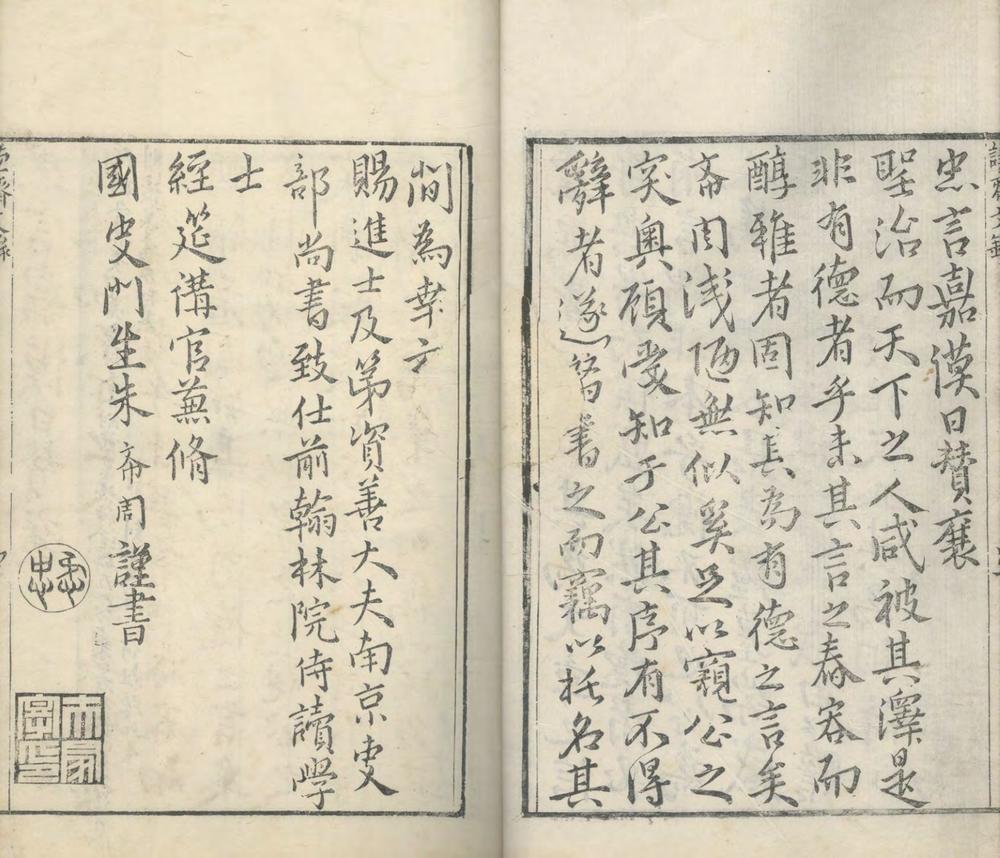 忠言嘉謨日贊襄
聖治而天下之人咸被其澤是
非有德者乎未其言之舂容而
醇雅者固知其為有德之言矣
希周淺陋無似奚足以窺公之
突奧顧受知于公其序有不得
辭者遂敬書之而竊以托名其
間為幸云
賜進士及第資善大夫南京吏
部尚書致仕前翰林院侍讀學
士
經筵講官兼脩
國史門生朱希周謹書